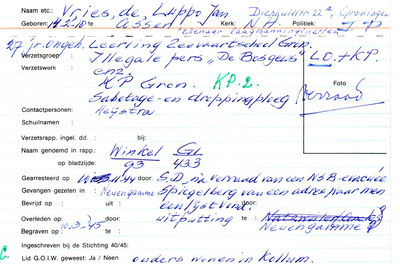 Naam etc.: Vries, de, Luppo Jan Diezerstr 22a, Groningen
Geboren: te Assen Kerk: N.H. Politiek:
27 jr. Ongeh. Leerling Zeevaartschool Gron.
Verzetsgroep: Illegale pers "De Bosgeus" LO + KP.
Verzetswerk: enz.
KP Gron. KP.2.
Foto
Sabotage- en droppingploeg verraad
Contactpersonen: Heijstra
Schuilnamen:
Verzetsrapp. ingel. dd. : bij:
Naam genoemd in rapp.: Winkel GL
op bladzijde: 93 433
Gearresteerd op door: S.D., na verraad van een NSB-evacuée
Gevangen gezeten in: Neuengamme Spiegelberg van een adres waar men
Bevrijd op : uit door: een lijst vond.
Overleden op: door: uitputting te
Begraven 10.3.'45 Neuengamme?
Ingeschreven bij de Stichting 40/45:
Lid G.O.I.W. geweest: Ja / Neen ouders wonen in Kollum.